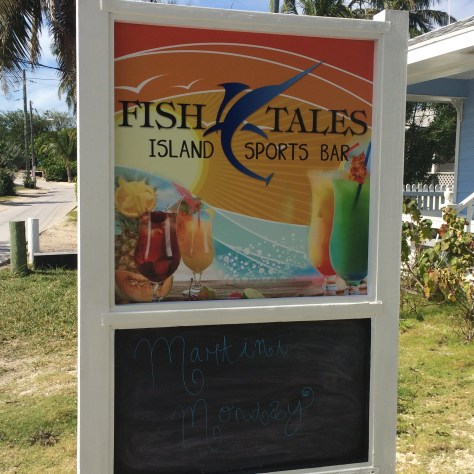 FISH TALES
ISLAND SPORTS BAR
Martini
Monday